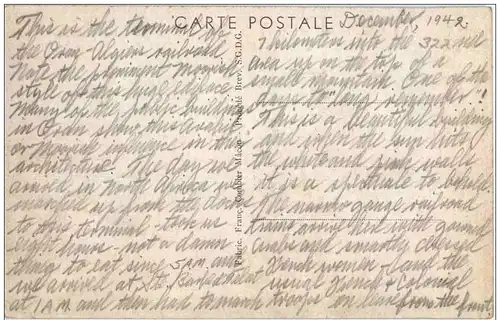 CARTE POSTALE
December, 1942
This is the terminal of
the Oran-Algiers railroad
Note the prominent Moorish
style of this huge edifice
Many of the public buildings
in Oran show this Arabic
or Moorish influence in the
architecture. The day we
arrived in North Africa we
marched up from the docks
to this terminal - took us
eight hours - not a damn
thing to eat since 5 A.M. and
we arrived at St.
at 1 A.M. and then had to march
7 kilometers into the
area up on the top of a
small mountain. One of the
days to "long remember"!
This is a beautiful building
and when the sun hits
the white and pink walls
it is a spectacle to behold.
The narrow gauge railroad
trains arrive here with
Arabs and smartly dressed
French women - and the
usual French & Colonial
troops on leave from the front.
Fabric. Franç. Combier Mâcon - Procédé Brev. S.G.D.G.